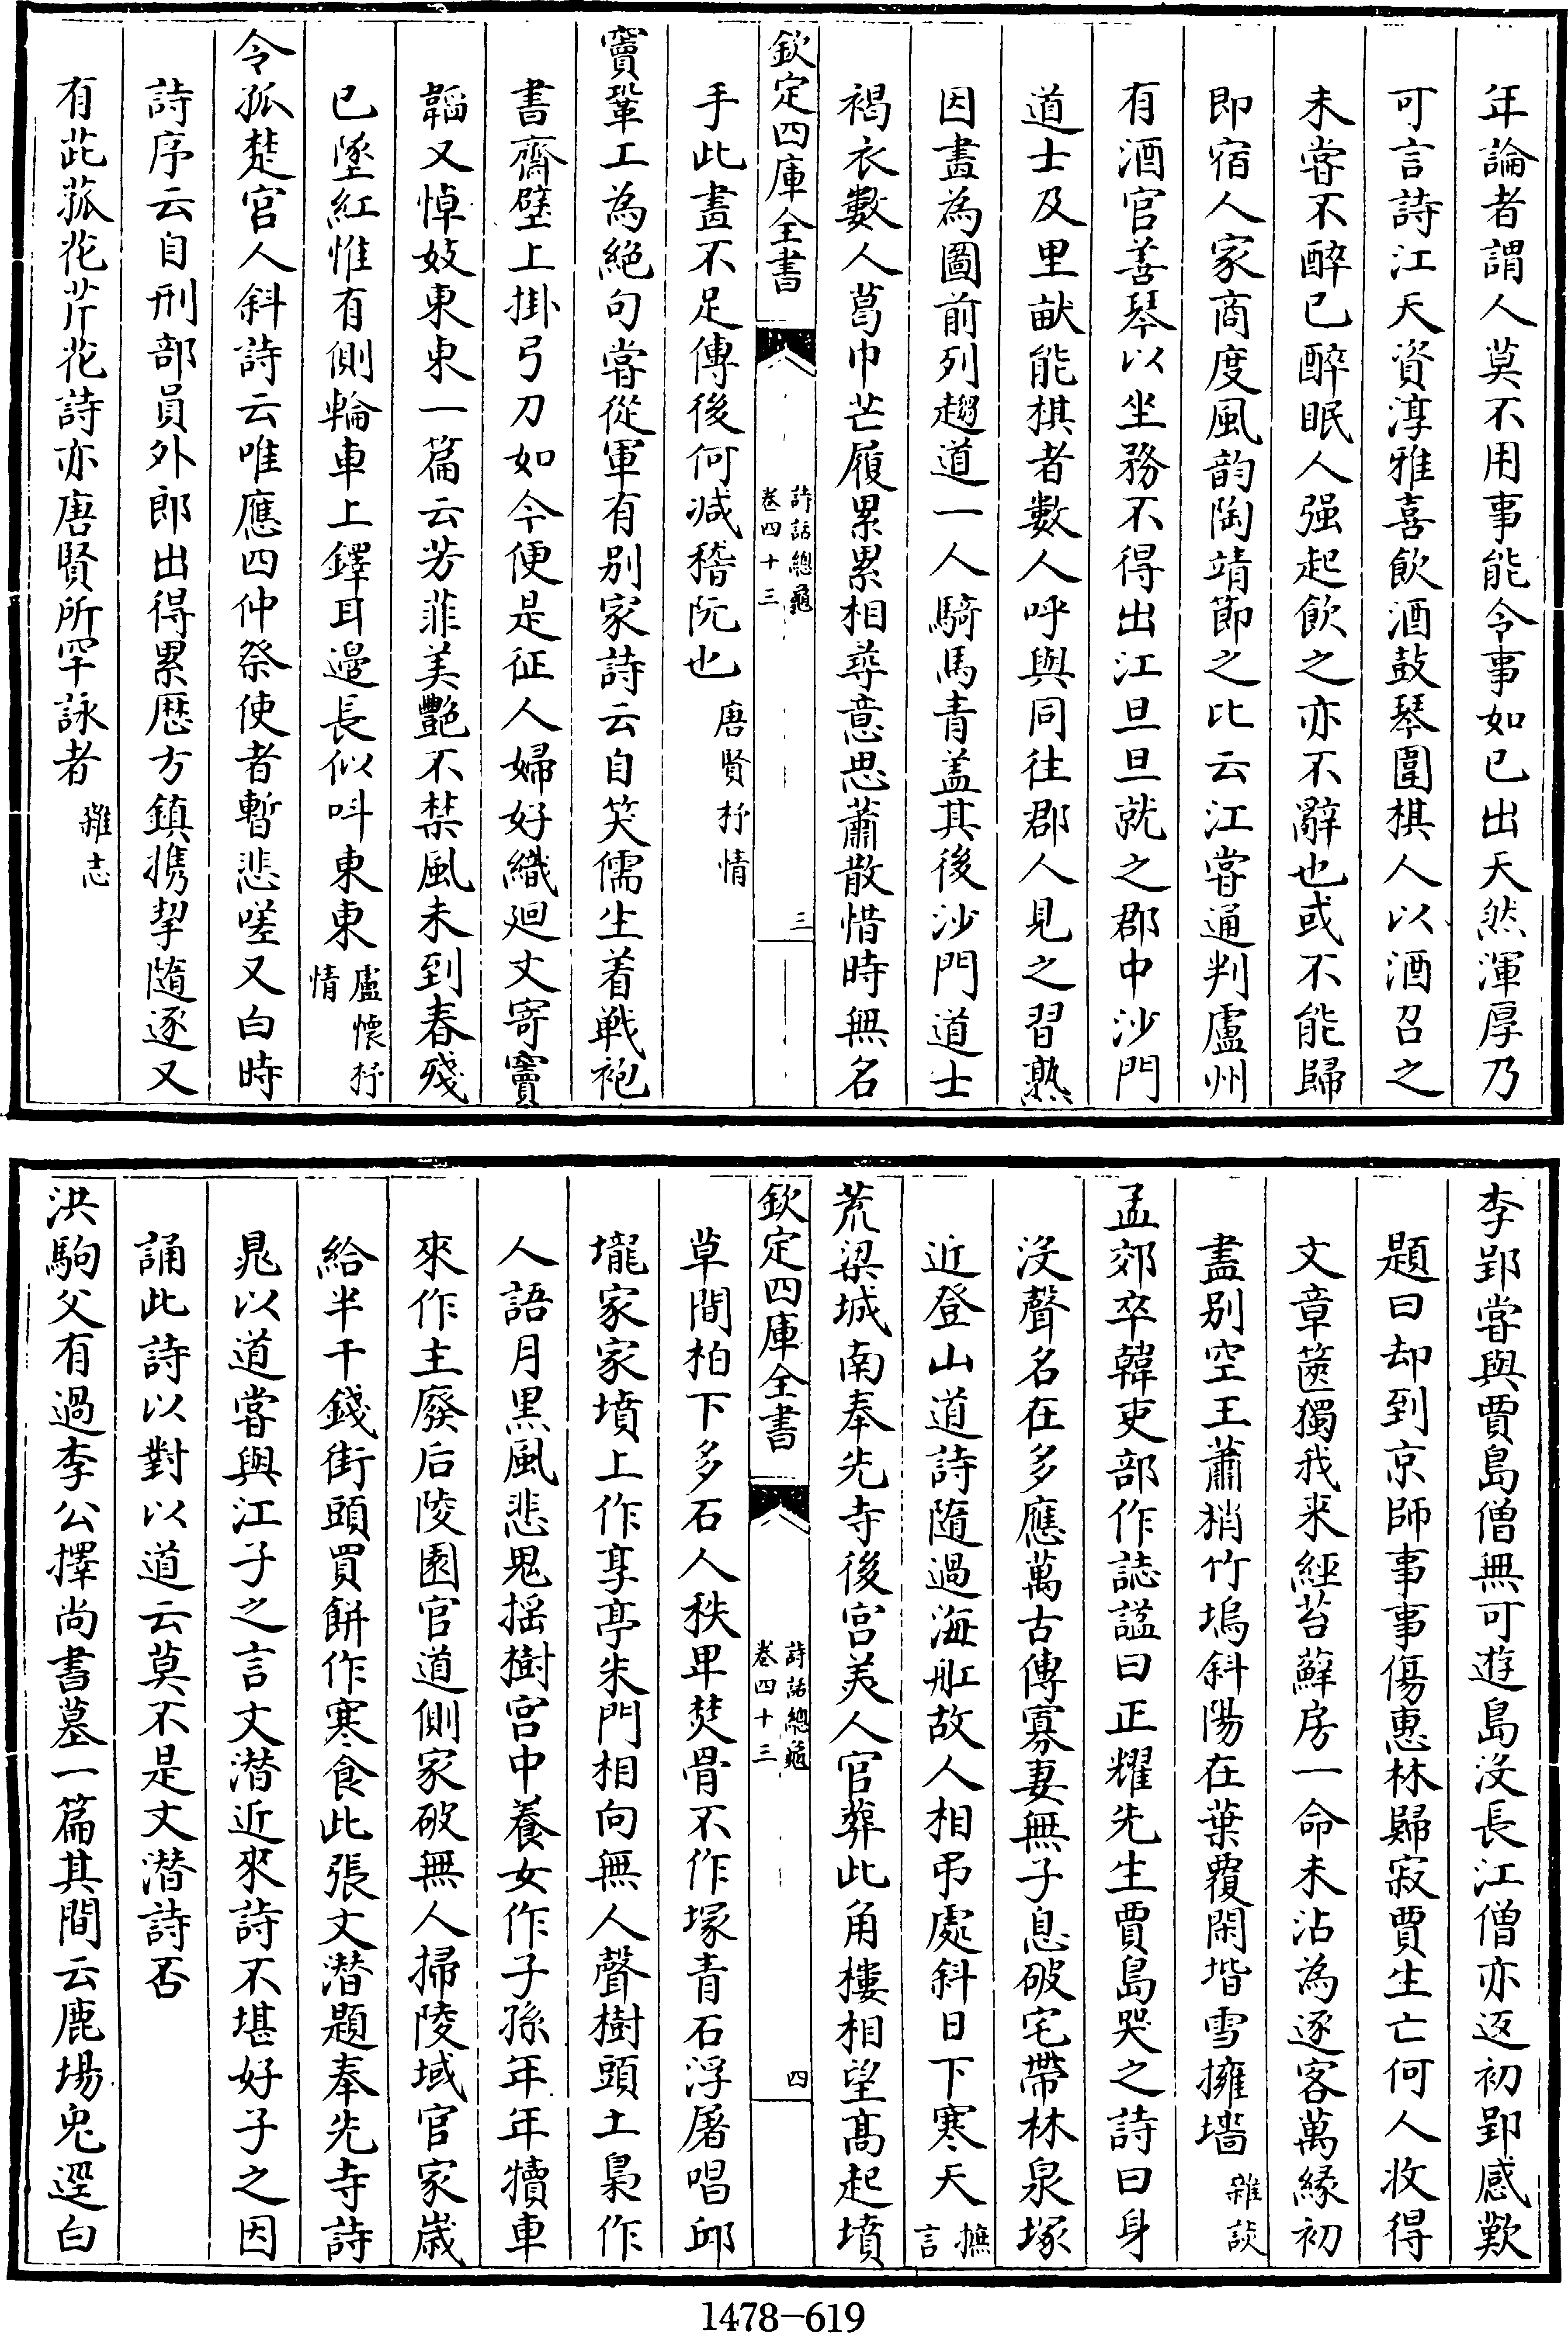 年論者謂人莫不用事能令事如已出天然渾厚乃
可言詩江天資淳雅喜飲酒鼓琴圍棋人以酒召之
未嘗不醉已醉眠人强起飲之亦不辭也或不能歸
即宿人家商度風韵陶靖節之比云江嘗通判廬州
有酒官善琴以坐務不得出江旦旦就之郡中沙門
道士及里畎能棋者數人呼與同往郡人見之習熟
因畫為圖前列趨道一人騎馬青盖其後沙門道士
褐衣數人葛巾芒履累累相尋意思蕭散惜時無名
欽定四庫全書
詩話總龜
卷四十三
三
手此畫不足傳後何减稽阮也 唐賢抒情
竇鞏工為絶句嘗從軍有别家詩云自笑儒生着戦袍
書齋壁上掛弓刀如今便是征人婦好織迴文寄竇
韜又悼妓東東一篇云芳菲美艷不禁風未到春殘
已墜紅惟有側輪車上鐸耳邉長似呌東東 盧懷抒
情
令狐楚宫人斜詩云唯應四仲祭使者暫悲嗟又白時
詩序云自刑部員外郎出得累歴方鎮携挈隨逐又
有茈菰花芹花詩亦唐賢所罕詠者 雜志
李郢嘗與賈島僧無可遊島沒長江僧亦返初郢感歎
題曰却到京師事事傷惠林歸寂賈生亡何人收得
文章篋獨我来經苔蘚房一命未沾為逐客萬緣初
盡别空王蕭梢竹塢斜陽在葉覆閑堦雪擁墻 雜談
孟郊卒韓吏部作誌謚曰正耀先生賈島哭之詩曰身
沒聲名在多應萬古傳寡妻無子息破宅帶林泉塚
近登山道詩隨過海舡故人相弔處斜日下寒天 摭
言
荒梁城南奉先寺後宫美人官葬此角樓相望髙起墳
欽定四庫全書
詩話總龜
卷四十三
四
草間柏下多石人秩卑焚骨不作塚青石浮屠唱邱
壠家家墳上作享亭朱門相向無人聲樹頭土梟作
人語月黒風悲鬼揺樹宫中養女作子孫年年犢車
來作主廢后陵園官道側家破無人掃陵域官家歳
給半千錢街頭買餅作寒食此張文潜題奉先寺詩
晁以道嘗與江子之言文潜近來詩不堪好子之因
誦此詩以對以道云莫不是文潜詩否
洪駒父有過李公擇尚書墓一篇其間云鹿場兎逕白
1478-619